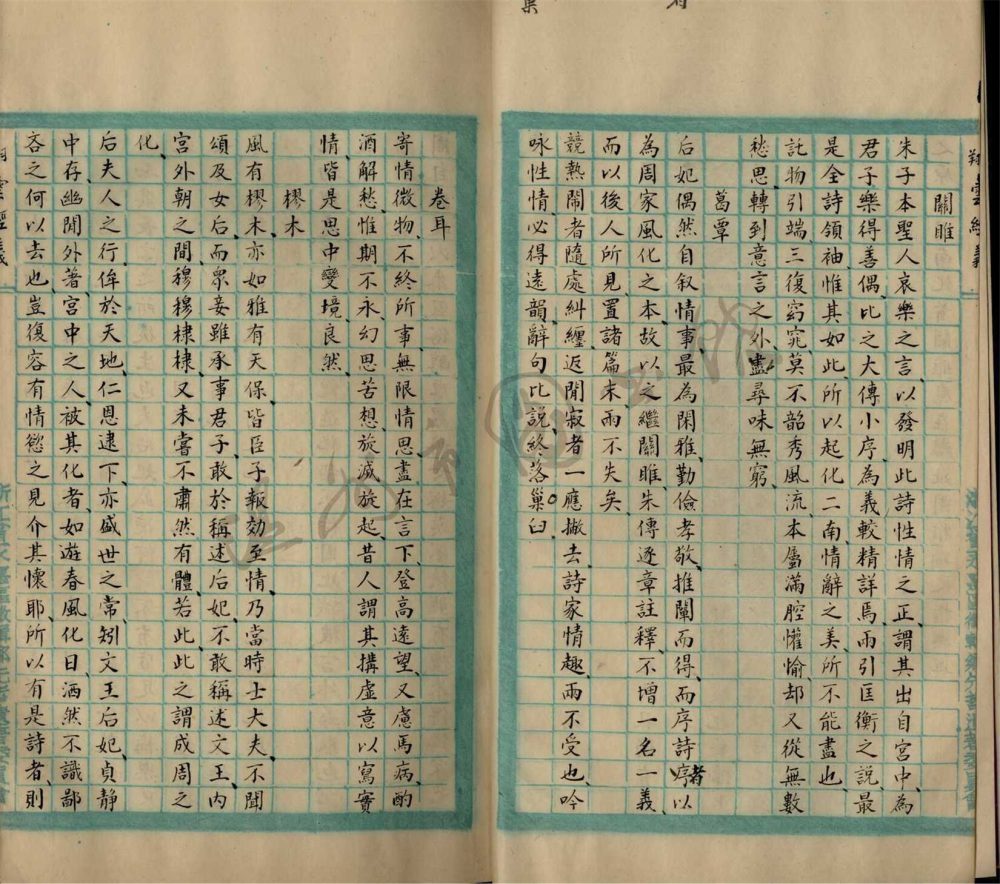 關雎
朱子本聖人哀樂之言、以發明此詩性情之正、謂其出自宮中、為
君子樂得善偶、比之大傳小序、為義較精詳焉、而引匡衡之說、最
是全詩領袖、惟其如此、所以起化二南、情辭之美、所不能盡也、
託物引端、三復窈窕、莫不韶秀風流、本屬滿腔懽愉、却又從無數
愁思、轉到意言之外、盡尋味無窮、
葛覃
后妃偶然自叙情事、最為閑雅、勤儉孝敬、推闡而得、而序詩者以
為周家風化之本、故以之繼關雎、朱傳逐章註釋、不增一名一義、
而以後人所見置諸篇末、兩不失矣、
競熱鬧者隨處糾纏、返閒寂者一應撇去、詩家情趣、兩不受也、吟
咏性情、必得遠韻、辭句比說、終落巢臼、
卷耳
寄情微物、不終所事、無限情思、盡在言下、登高遠望、又慮馬病、酌
酒解愁、惟期不永、幻思苦想、旋滅旋起、昔人謂其搆虛意以寫實
情、皆是思中變境、良然、
樛木
風有樛木、亦如雅有天保、皆臣子報効至情、乃當時士大夫、不聞
頌及女后、而衆妾雖承事君子、敢於稱述后妃、不敢稱述文王、內
宮外朝之間、穆穆棣棣、又未嘗不肅然有體、若此、此之謂成周之
化、
后夫人之行、侔於天地、仁恩逮下、亦盛世之常、矧文王后妃、貞靜
中存、幽閒外著、宮中之人、被其化者、如遊春風化日、洒然不識鄙
吝之何以去也、豈復容有情慾之見介其懷耶、所以有是詩者、則